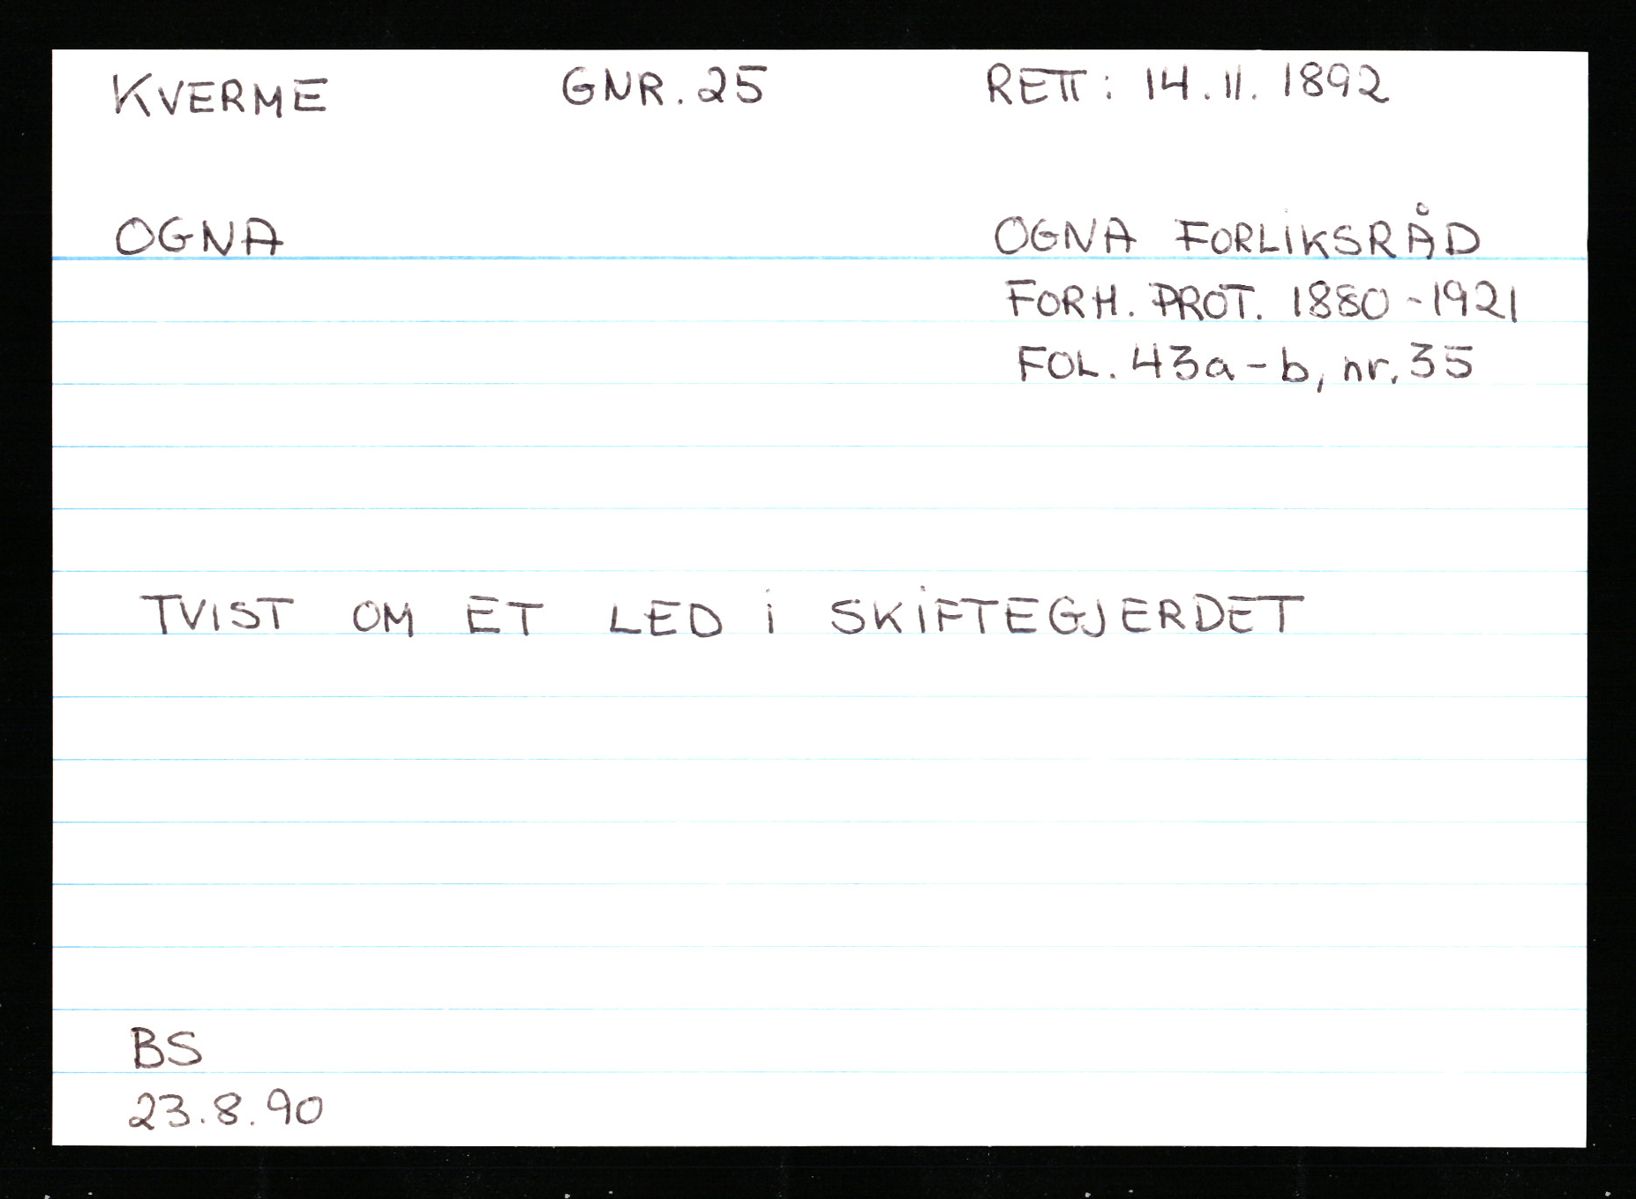 KVERME GNR. 25 RETT: 14.11.1892
OGNA OGNA FORLIKSRÅD
FORH. PROT. 1880-1921
FOL. 43a-b, nr. 35
TVIST OM ET LED I SKIFTEGJERDET
BS
23.8.90